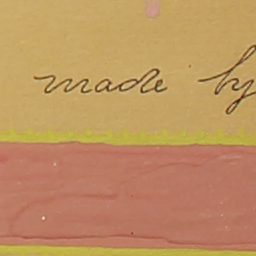 made by